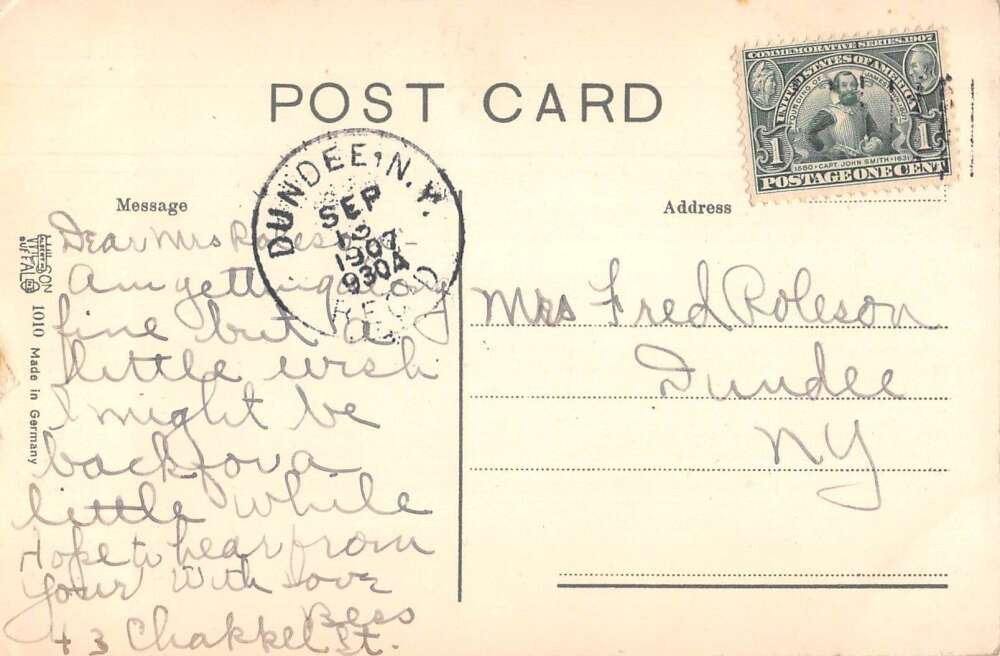 POST CARD
COMMEMORATIVE SERIES 1907
UNITED STATES OF AMERICA
FOUNDING OF JAMESTOWN
1
1
1580 • CAPT. JOHN SMITH • 1631
POSTAGE ONE CENT
DUNDEE, N.Y.
SEP
1907
930A
REC'D
Message
Dear Mrs
Am getting along
fine but a
little wish
I might be
back for a
little while
Hope to hear from
your with love
Bess
43 St.
Address
Mrs Fred Roleson
Dundee
NY
BUFFALO
1010 Made in Germany